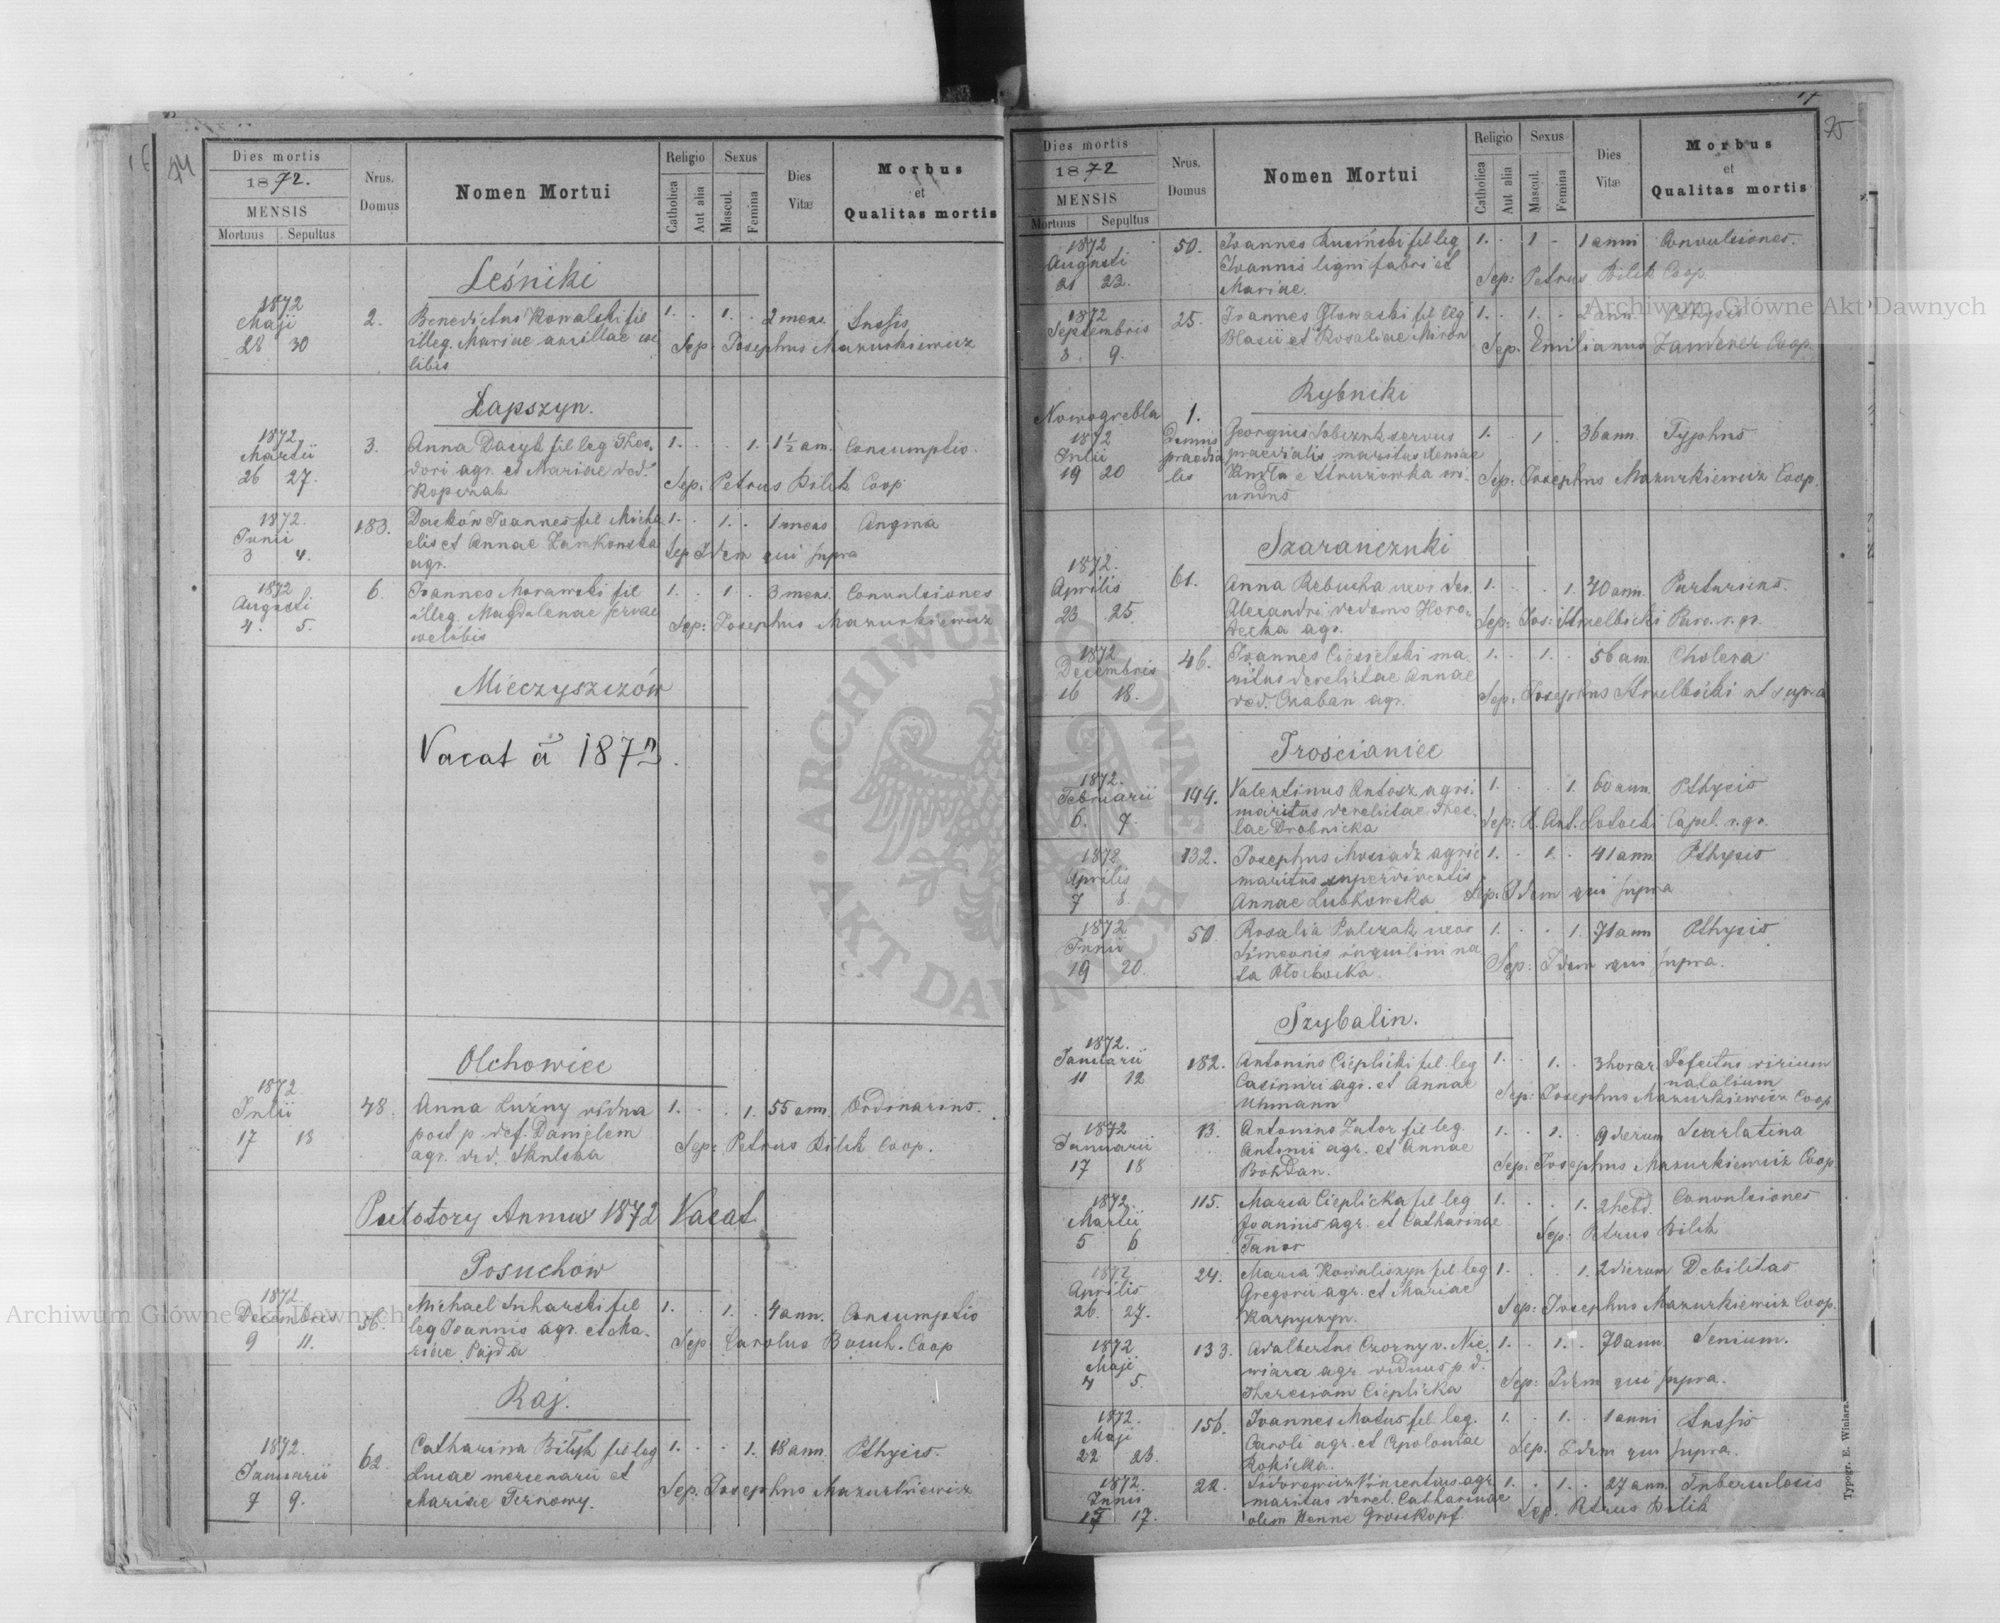 74
Dies mortis
1872.
MENSIS
Mortuus Sepultus
Nrus. Domus
Nomen Mortui
Religio
Catholica
Aut alia
Sexus
Mascul.
Femina
Dies Vitæ
Morbus
et
Qualitas mortis
Leśniki
1872
Maji
28 30
2.
Benedictus Kowalski fil
illeg. Mariae ancillae coe
libis
1. 1. 2 mens. Tussis
Sep: Josephus Mazurkiewicz
Łapszyn.
1872
Martii
26 27.
3.
Anna Dacyk fil leg Theo
dori agr. et Mariae
1. 1. 1½ ann. Consumptio.
Sep: Petrus Bilik Coop
1872.
Junii
3 4.
183.
Joannes fil Micha
elis et Annae Zamkowska
agr.
1. 1. 1 mens Angina
Sep Idem qui supra
1872
Augusti
4. 5.
6.
Joannes Morawski fil
illeg. Magdalenae servae
coelibis
1. 1. 3 mens. Convulsiones
Sep: Josephus Mazurkiewicz
Mieczyszczów
Vacat a 1872.
Olchowiec
1872.
Julii
17 18
48.
Anna Luźny vidua
post p def. Danielem
agr.
1. 1. 55 ann. Ordinarius.
Sep: Petrus Bilik Coop.
Putotory Annus 1872 Vacat
Posuchów
1872
Decembris
9 11.
56.
Michael fil
leg Joannis agr. et Ma-
riae Pajda
1. 1. 4 ann. Consumptio
Sep Carolus Coop
Raj.
1872.
Januarii
7 9.
62.
Catharina fil leg
Lucae mercenarii et
Mariae Ternowy.
1. 1. 18 ann. Pthysis.
Sep. Josephus Mazurkiewicz
75
Dies mortis
1872
MENSIS
Mortuus Sepultus
Nrus. Domus
Nomen Mortui
Religio
Catholica
Aut alia
Sexus
Mascul.
Femina
Dies Vitæ
Morbus
et
Qualitas mortis
1872
Augusti
21 22.
50.
Joannes Rusiński fil leg
Joannis ligni fabri et
Mariae.
1. 1 1 anni Convulsiones.
Sep: Petrus Bilik Coop.
1872
Septembris
8 9.
25.
Joannes Głowacki fil leg
Blasii et Rosaliae Miron
1. 1. 2 ann. Pthysis
Sep. Emilianus Coop.
Rybniki
Nowogrebla
1872
Julii
19 20
1.
Domus
praedia
lis
Georgius servus
praedialis maritus
1. 1. 36 ann. Typhus
Sep: Josephus Mazurkiewicz Coop.
Szaranczuki
1872.
Aprilis
23 25.
61.
Anna Rebucha uxor
Alexandri de domo Horo-
decka agr.
1. 1. 40 ann. Parturiens.
Sep: Jos: Strelbicki Paro. r. gr.
1872
Decembris
16 18.
46.
Joannes Ciesielski ma-
ritus derelictae Annae
agr.
1. 1. 56 ann Cholera
Sep: Josephus Strelbicki ut supra
Trościaniec
1872.
Februarii
6. 7.
144.
Valentinus Antosz agri.
maritus derelictae Thec-
lae Drobnicka
1. 1. 60 ann. Pthysis
Sep: Ant. Capel. r. gr.
1872.
Aprilis
7 8
132.
Josephus Mosiadz agric
maritus superviventis
Annae Lubkowska
1. 1. 41 ann Pthysis
Sep: Idem qui supra
1872
Junii
19 20.
50.
Rosalia Palczak uxor
Simeonis inquilini na-
ta
1. 1. 71 ann Pthysis
Sep: Idem qui supra.
Szybalin.
1872.
Januarii
11 12
182.
Antonius Cieplicki fil. leg
Casimiri agr. et Annae
Uhmann
1. 1. 3 horar Defectus virium
natalium
Sep: Josephus Mazurkiewicz Coop
1872
Januarii
17 18
13.
Antonius Zator fil leg.
Antonii agr. et Annae
Bohdan.
1. 1. 9 dierum Scarlatina
Sep: Josephus Mazurkiewicz Coop
1872.
Martii
5 6
115.
Maria Cieplicka fil leg
Joannis agr. et Catharinae
1. 1. 2 hebd. Convulsiones
Sep: Petrus Bilik
1872
Aprilis
26. 27.
24.
Maria Kowaliszyn fil leg
Gregorii agr. et Mariae
Karpyszyn.
1. 1. 2 dierum Debilitas
Sep: Josephus Mazurkiewicz Coop.
1872
Maji
4 5.
133.
Adalbertus Czorny v. Nie-
wiara agr. viduus p. d.
Theresiam Cieplicka
1. 1. 70 ann Senium.
Sep: Idem qui supra.
1872.
Maji
22 23.
156.
Joannes Matus fil. leg.
Caroli agr. et Apoloniae
Rokicka.
1. 1. 1 anni Tussis
Sep. Idem qui supra.
1872.
Junii
17.
22.
Sidorowicz Vincentius agr.
maritus derel. Catharinae
olim Henne Grosskopf.
1. 1. 27 ann Tuberculosis
Sep. Petrus Bilik
Typogr. E. Winiarz.
Archiwum Główne Akt Dawnych
Archiwum Główne Akt Dawnych
ARCHIWUM GŁÓWNE AKT DAWNYCH